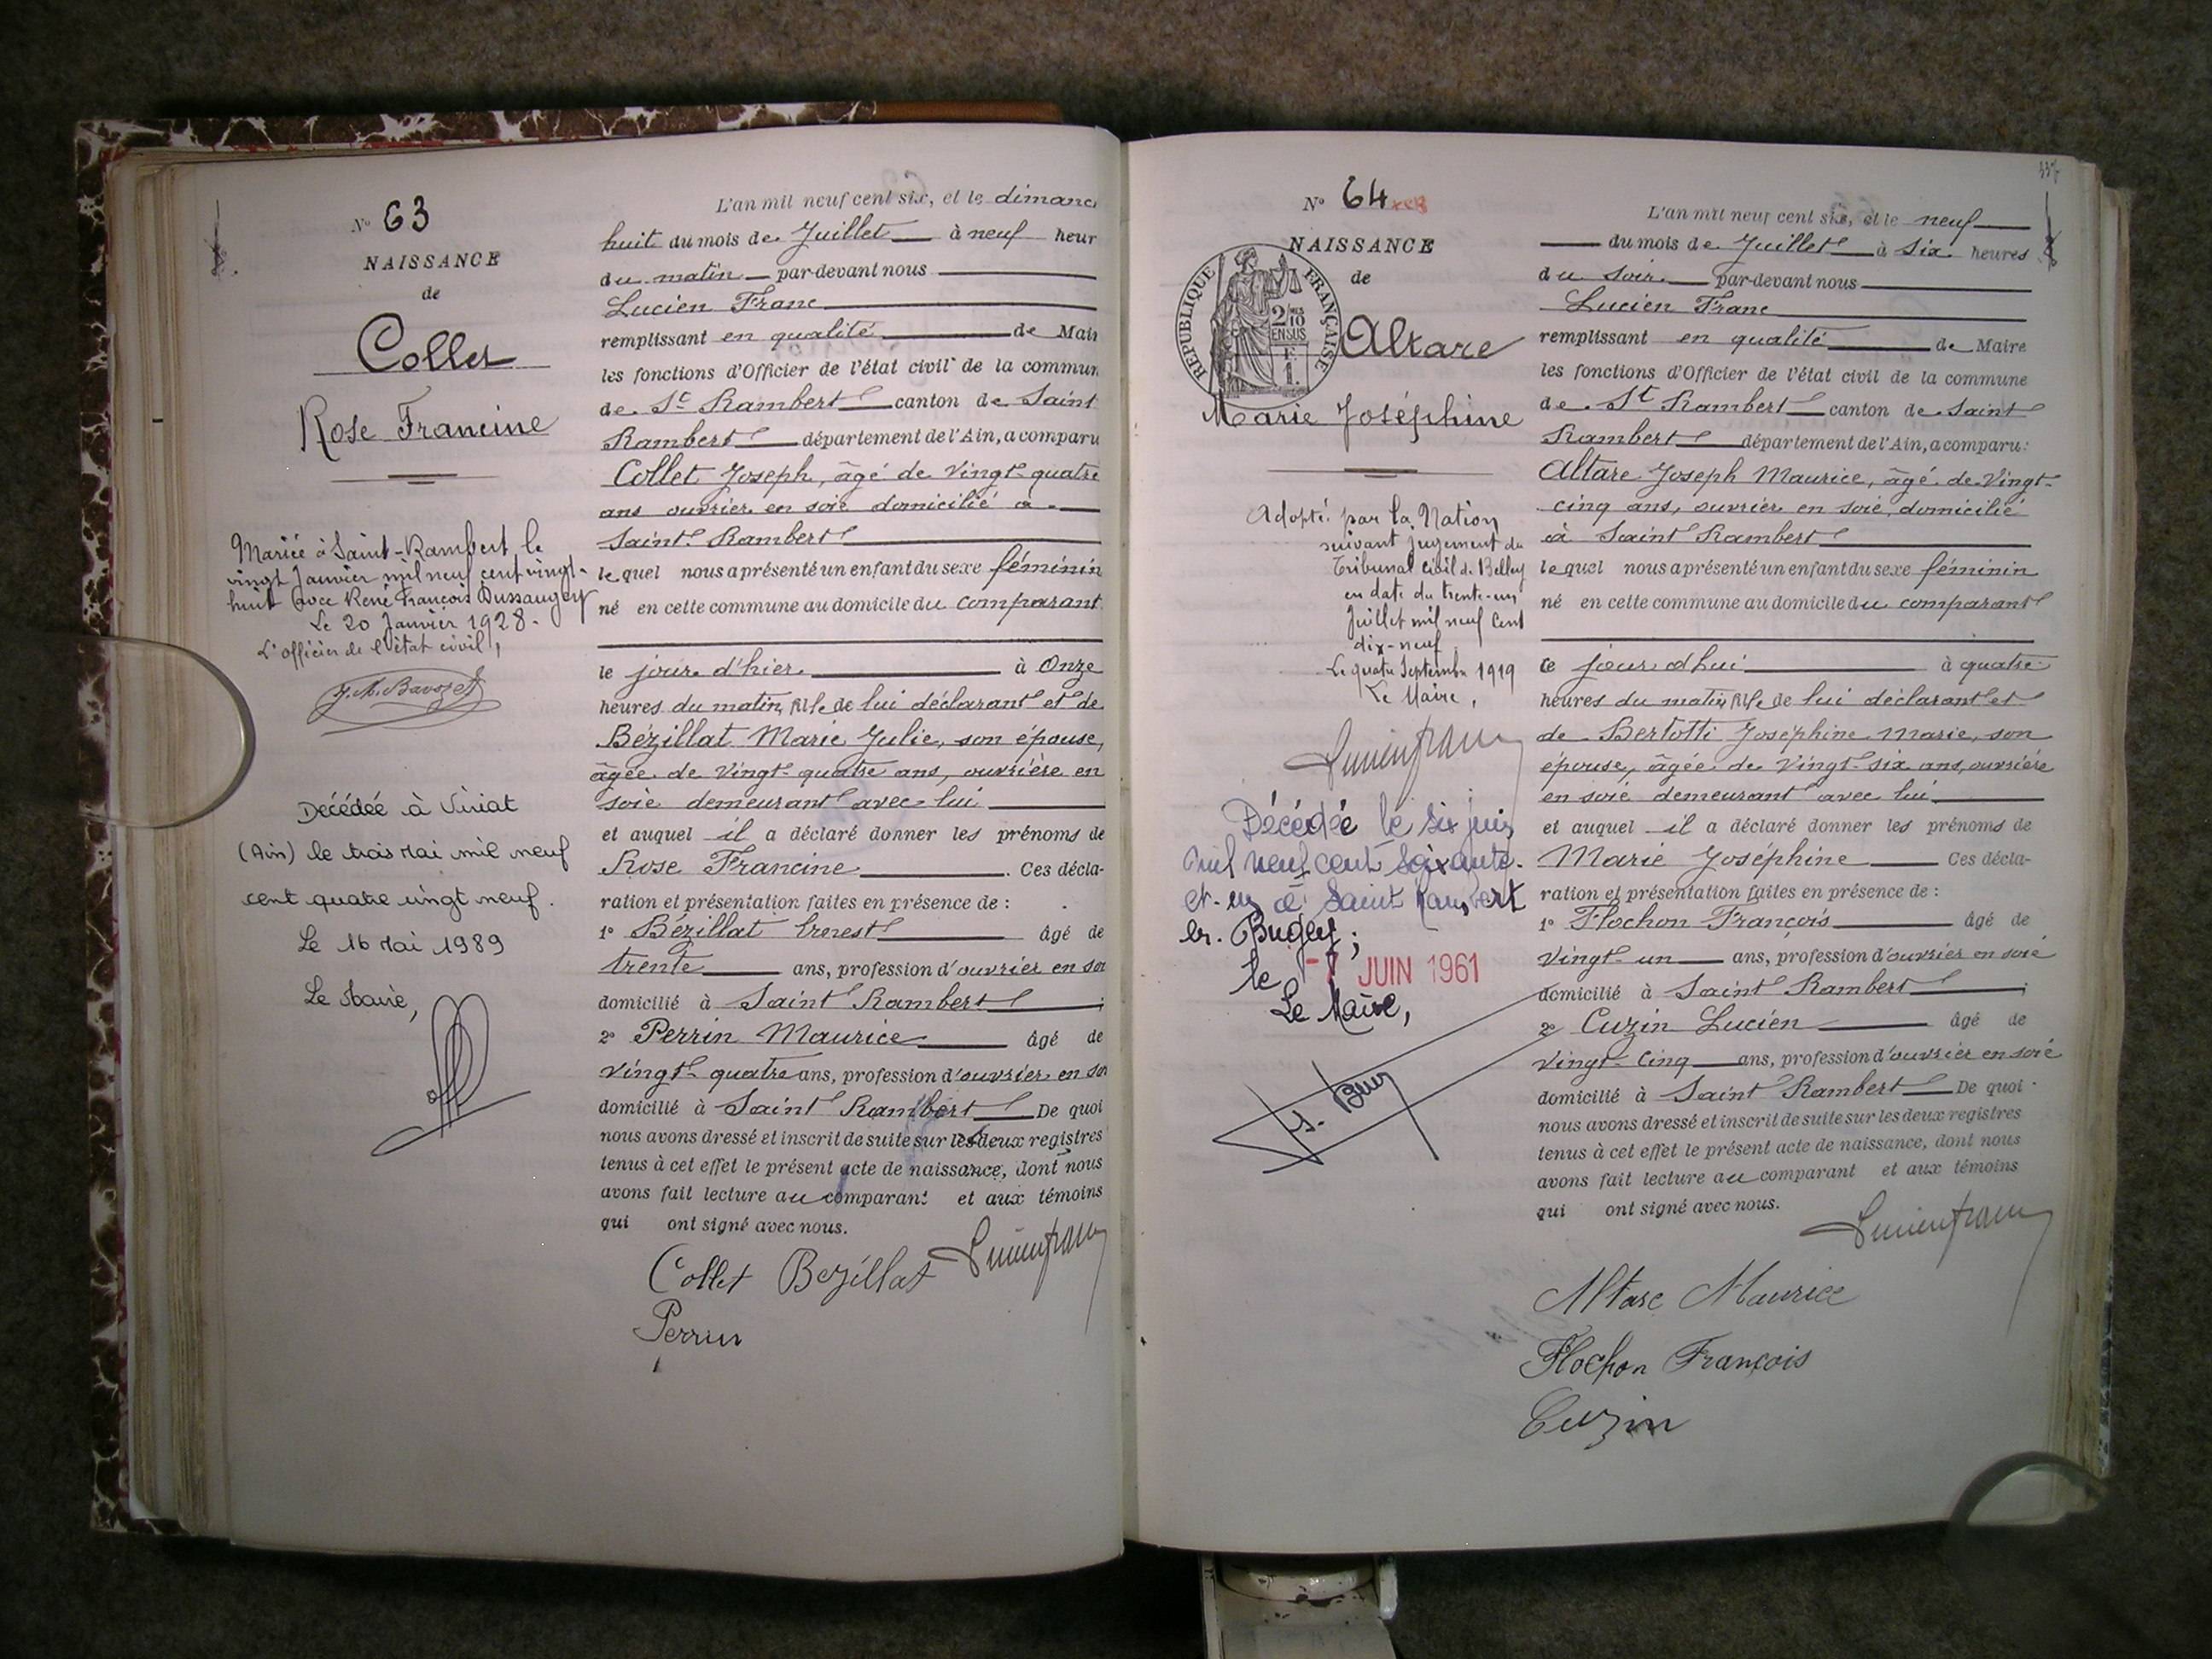 N° 63
NAISSANCE
de
Collet
Rose Francine
Mariée à Saint-Rambert, le
vingt Janvier mil neuf cent vingt-
huit avec René François Dussaugey
Le 20 Janvier 1928.
L'officier de l'état civil,
Décédée à Viriat
(Ain) le trois Mai mil neuf
cent quatre vingt neuf.
Le 16 Mai 1989
Le Maire,
L'an mil neuf cent six, et le dimanc
huit du mois de Juillet à neuf heur
du matin par-devant nous
Lucien Franc
remplissant en qualité de Mair
les fonctions d'Officier de l'état civil de la commun
de St Rambert canton de Saint
Rambert département de l'Ain, a comparu
Collet Joseph, âgé de vingt-quatre
ans ouvrier en soie domicilié à
Saint Rambert
le quel nous a présenté un enfant du sexe féminin
né en cette commune au domicile du comparant
le jour d'hier à Onze
heures du matin, fille de lui déclarant et de
Bézillat Marie Julie, son épouse,
âgée de vingt-quatre ans, ouvrière en
soie demeurant avec lui
et auquel il a déclaré donner les prénoms de
Rose Francine. Ces décla-
ration et présentation faites en présence de :
1° Bézillat Ernest âgé de
trente ans, profession d'ouvrier en soi
domicilié à Saint Rambert ;
2° Perrin Maurice âgé de
vingt-quatre ans, profession d'ouvrier en soi
domicilié à Saint Rambert De quoi
nous avons dressé et inscrit de suite sur les deux registres
tenus à cet effet le présent acte de naissance, dont nous
avons fait lecture au comparant et aux témoins
qui ont signé avec nous.
Collet Bezillat Lucien Franc
Perrin
337
N° 64
NAISSANCE
de
REPUBLIQUE FRANÇAISE
2/10
EN SUS
F.
1.
Altare
Marie Joséphine
Adopté par la Nation
suivant jugement du
Tribunal civil de Belley
en date du trente-un
Juillet mil neuf cent
dix-neuf
Le quatre Septembre 1919
Le Maire,
Lucien Franc
Décédée le six juin
mil neuf cent soixante-
et-un à Saint Rambert
en Bugey ;
le -7 JUIN 1961
Le Maire,
L'an mil neuf cent six, et le neuf
du mois de Juillet à six heures
du soir par-devant nous
Lucien Franc
remplissant en qualité de Maire
les fonctions d'Officier de l'état civil de la commune
de St Rambert canton de Saint
Rambert département de l'Ain, a comparu :
Altare Joseph Maurice, âgé de vingt-
cinq ans, ouvrier en soie, domicilié
à Saint Rambert
le quel nous a présenté un enfant du sexe féminin
né en cette commune au domicile du comparant
ce jour d'hui à quatre
heures du matin, fille de lui déclarant et
de Bertotti Joséphine Marie, son
épouse, âgée de vingt-six ans, ouvrière
en soie demeurant avec lui
et auquel il a déclaré donner les prénoms de
Marie Joséphine Ces décla-
ration et présentation faites en présence de :
1° Flochon François âgé de
vingt-un ans, profession d'ouvrier en soie
domicilié à Saint Rambert ;
2° Cuzin Lucien âgé de
vingt-cinq ans, profession d'ouvrier en soie
domicilié à Saint Rambert De quoi
nous avons dressé et inscrit de suite sur les deux registres
tenus à cet effet le présent acte de naissance, dont nous
avons fait lecture au comparant et aux témoins
qui ont signé avec nous.
Lucien Franc
Altare Maurice
Flochon François
Cuzin